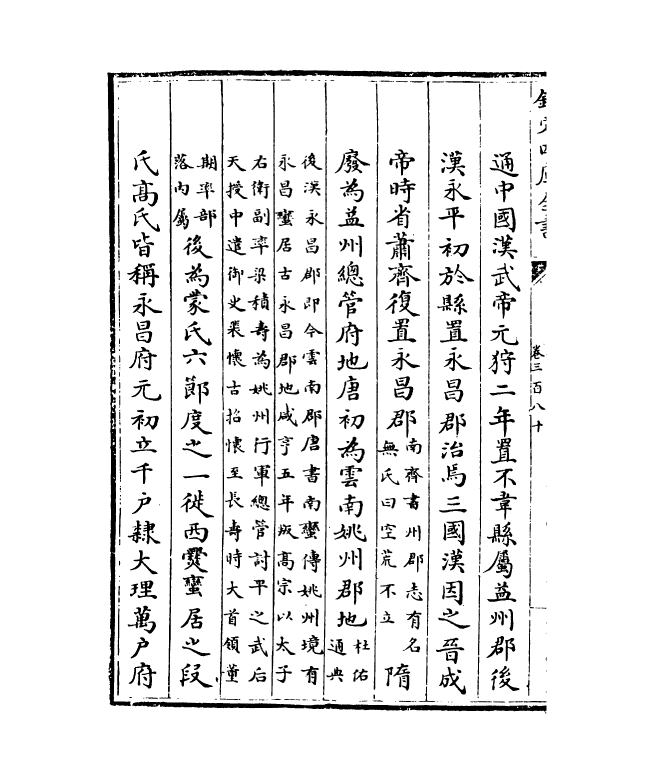 欽定四庫全書
卷三百八十
通中國漢武帝元狩二年置不韋縣屬益州郡後
漢永平初於縣置永昌郡治焉三國漢因之晉成
帝時省蕭齊復置永昌郡南齊書州郡志有名無氏曰空荒不立隋
廢為益州總管府地唐初為雲南姚州郡地杜佑通典
後漢永昌郡即今雲南郡唐書南蠻傳姚州境有
永昌蠻居古永昌郡地咸亨五年叛高宗以太子
右衛副率梁積壽為姚州行軍總管討平之武后
天授中遣御史裴懷古招懷至長壽時大首領董
期率部落内屬後為蒙氏六節度之一徙西爨蠻居之段
氏高氏皆稱永昌府元初立千户隸大理萬户府